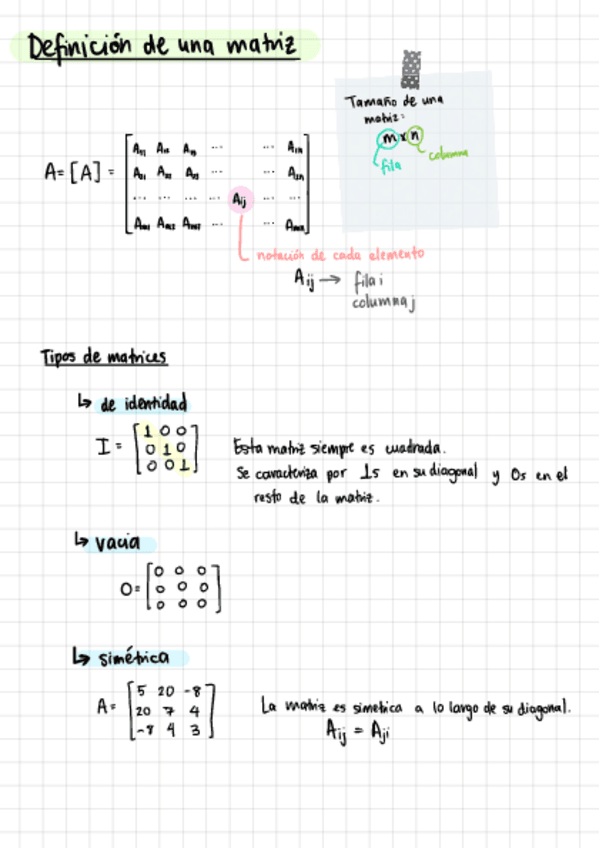 Definición de una matriz
Tamaño de una
matriz:
m x n
fila
columna
A = [A] =
A₁₁ A₁₂ A₁₃ ... ... A₁ₙ
A₂₁ A₂₂ A₂₃ ... ... A₂ₙ
... ... ... ... Aij ... ...
Aₘ₁ Aₘ₂ Aₘ₃ ... ... Aₘₙ
notación de cada elemento
Aij → fila i
columna j
Tipos de matrices
↳ de identidad
I =
1 0 0
0 1 0
0 0 1
Esta matriz siempre es cuadrada.
Se caracteriza por 1s en su diagonal y 0s en el
resto de la matriz.
↳ vacia
O =
0 0 0
0 0 0
0 0 0
↳ simétrica
A =
5 20 -8
20 7 4
-8 4 3
La matriz es simetrica a lo largo de su diagonal.
Aij = Aji